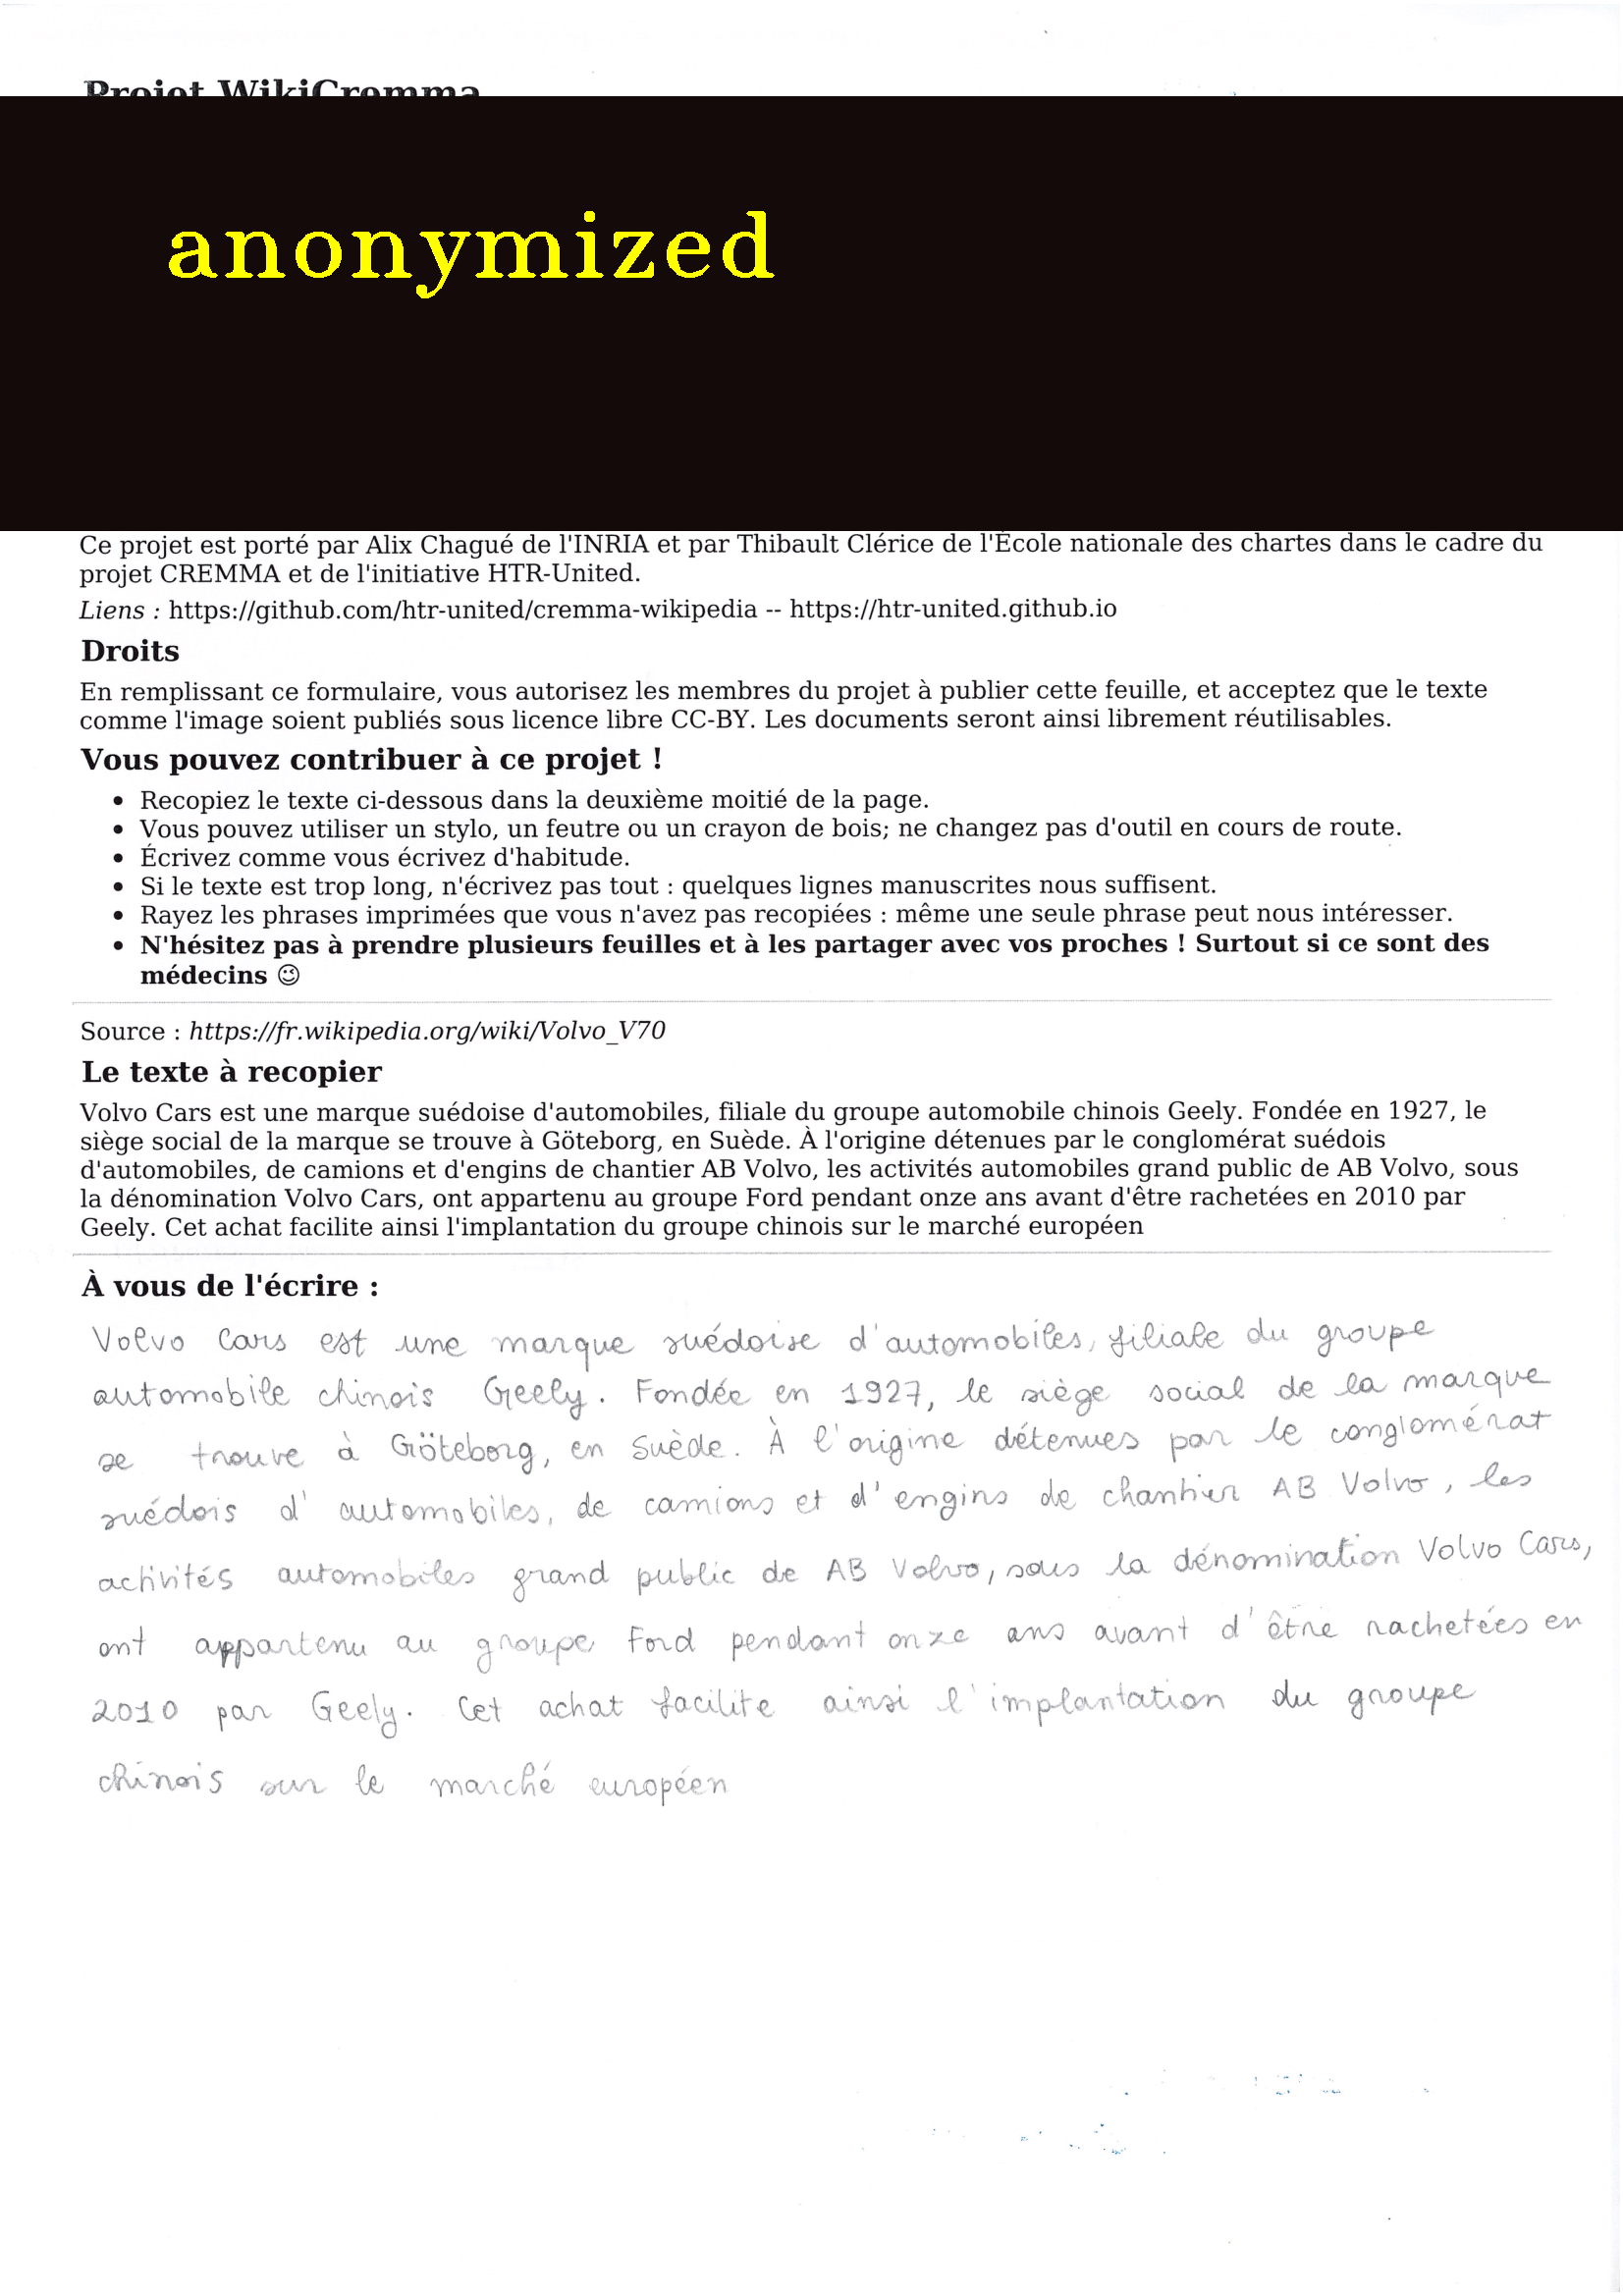 Projet WikiCremma
anonymized
Ce projet est porté par Alix Chagué de l'INRIA et par Thibault Clérice de l'École nationale des chartes dans le cadre du
projet CREMMA et de l'initiative HTR-United.
Liens : https://github.com/htr-united/cremma-wikipedia -- https://htr-united.github.io
Droits
En remplissant ce formulaire, vous autorisez les membres du projet à publier cette feuille, et acceptez que le texte
comme l'image soient publiés sous licence libre CC-BY. Les documents seront ainsi librement réutilisables.
Vous pouvez contribuer à ce projet !
• Recopiez le texte ci-dessous dans la deuxième moitié de la page.
• Vous pouvez utiliser un stylo, un feutre ou un crayon de bois; ne changez pas d'outil en cours de route.
• Écrivez comme vous écrivez d'habitude.
• Si le texte est trop long, n'écrivez pas tout : quelques lignes manuscrites nous suffisent.
• Rayez les phrases imprimées que vous n'avez pas recopiées : même une seule phrase peut nous intéresser.
• N'hésitez pas à prendre plusieurs feuilles et à les partager avec vos proches ! Surtout si ce sont des
médecins 😉
Source : https://fr.wikipedia.org/wiki/Volvo_V70
Le texte à recopier
Volvo Cars est une marque suédoise d'automobiles, filiale du groupe automobile chinois Geely. Fondée en 1927, le
siège social de la marque se trouve à Göteborg, en Suède. À l'origine détenues par le conglomérat suédois
d'automobiles, de camions et d'engins de chantier AB Volvo, les activités automobiles grand public de AB Volvo, sous
la dénomination Volvo Cars, ont appartenu au groupe Ford pendant onze ans avant d'être rachetées en 2010 par
Geely. Cet achat facilite ainsi l'implantation du groupe chinois sur le marché européen
À vous de l'écrire :
Volvo Cars est une marque suédoise d'automobiles, filiale du groupe
automobile chinois Geely. Fondée en 1927, le siège social de la marque
se trouve à Göteborg, en Suède. À l'origine détenues par le conglomérat
suédois d'automobiles, de camions et d'engins de chantier AB Volvo, les
activités automobiles grand public de AB Volvo, sous la dénomination Volvo Cars,
ont appartenu au groupe Ford pendant onze ans avant d'être rachetées en
2010 par Geely. Cet achat facilite ainsi l'implantation du groupe
chinois sur le marché européen